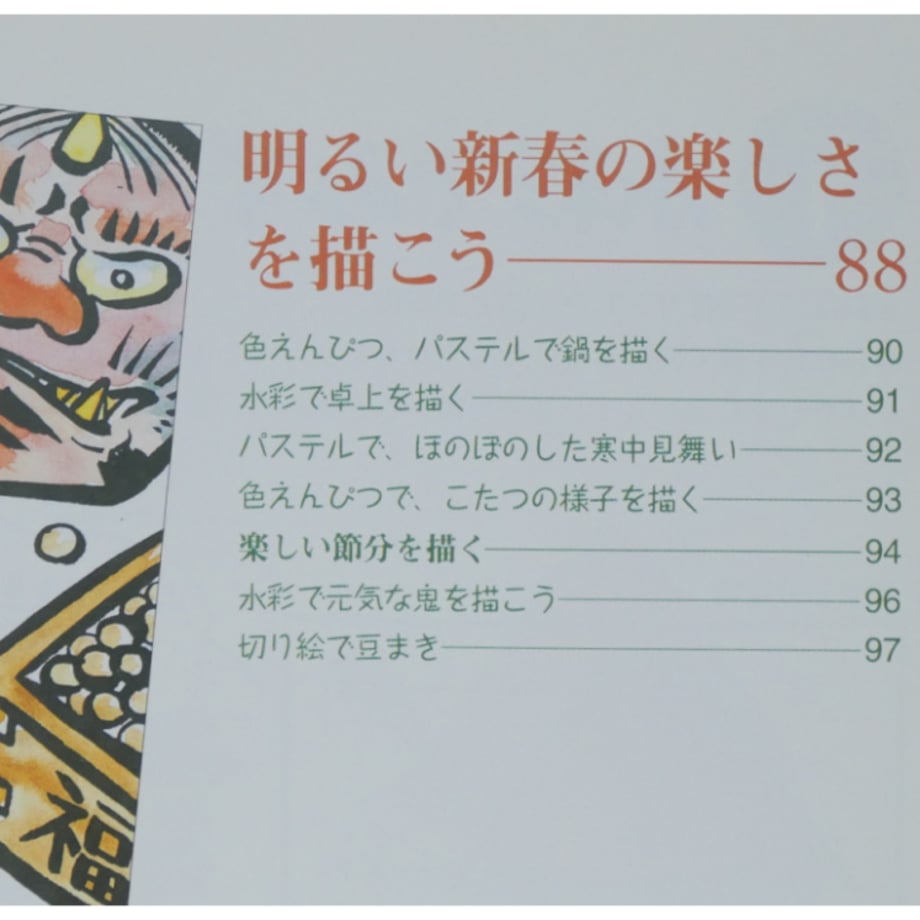 明るい新春の楽しさ
を描こう――88
色えんぴつ、パステルで鍋を描く――90
水彩で卓上を描く――91
パステルで、ほのぼのした寒中見舞い――92
色えんぴつで、こたつの様子を描く――93
楽しい節分を描く――94
水彩で元気な鬼を描こう――96
切り絵で豆まき――97
福